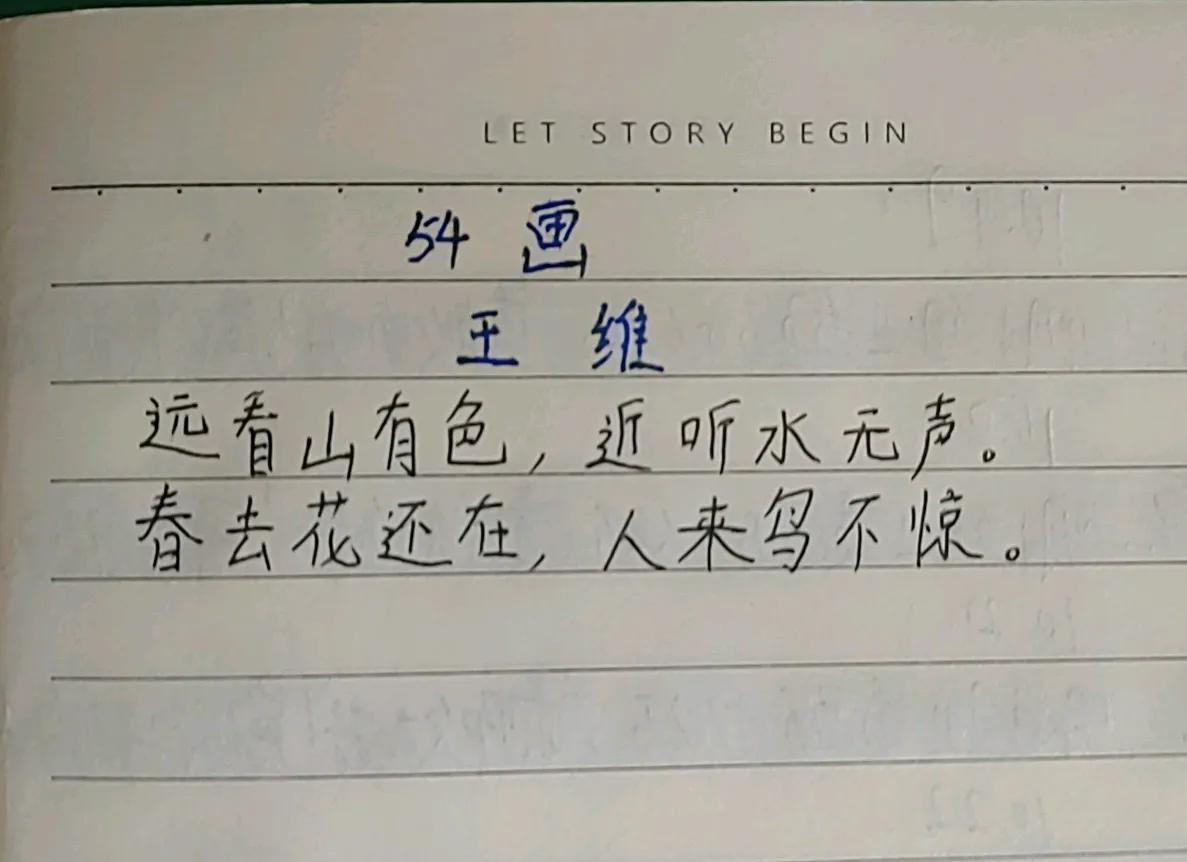 LET STORY BEGIN
54 画
王 维
远看山有色,近听水无声。
春去花还在,人来鸟不惊。